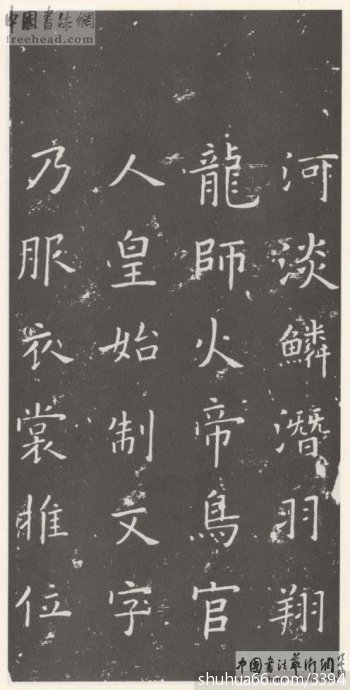 中國書法網
freehead.com
河淡鱗潛羽翔
龍師火帝鳥官
人皇始制文字
乃服衣裳推位
中國書法藝術網
shuhua66.com/3394